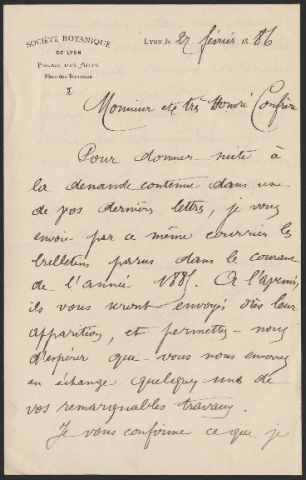 SOCIÉTÉ BOTANIQUE
DE LYON
PALAIS DES ARTS
Place des Terreaux
Lyon le 27 février 1886
Monsieur et très honoré Confrère
Pour donner suite à
la demande contenue dans une
de vos dernières lettres, je vous
envoie par ce même courrier les
bulletins parus dans le courant
de l'année 1885. A l'avenir,
ils vous seront envoyés dès leur
apparition, et permettez-nous
d'espérer que vous nous enverrez
en échange quelques uns de
vos remarquables travaux.
Je vous confirme ce que je